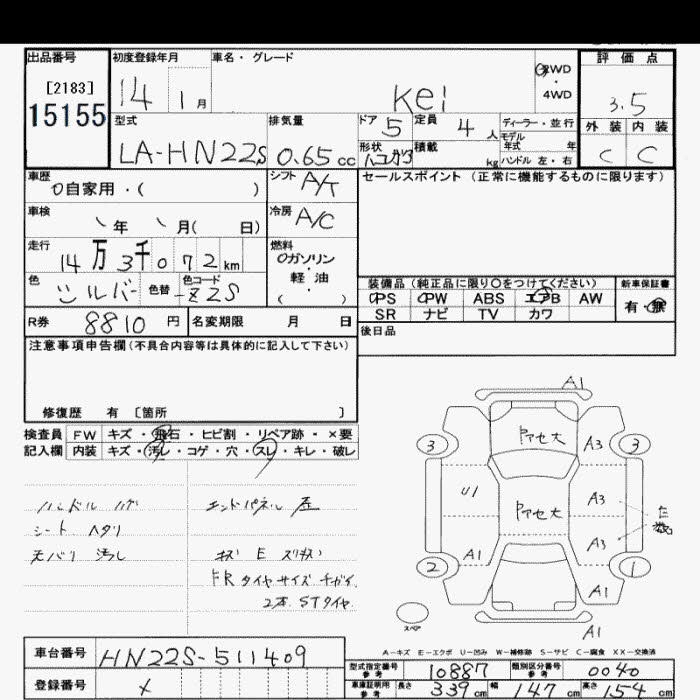 出品番号 初度登録年月 車名・グレード 評価点
[2183] 14 1月 Kei 2WD ・ 4WD 3.5
15155
型式 排気量 ドア 5 定員 4人 ディーラー・並行 外装 内装
モデル年式 年
LA-HN22S 0.65cc 形状 積載 kg ハンドル 左・右 C C
車歴 シフト A/T セールスポイント(正常に機能するものに限ります)
自家用・( )
車検 年 月( 日) 冷房 A/C
走行 14万3千072km 燃料 ガソリン・軽油 ( )
色 シルバー 色替 色コード Z2S
装備品(純正品に限り○をつけてください) 新車保証書
PS PW ABS エアB AW 有・無
SR ナビ TV カワ
R券 8810円 名変期限 月 日 後日品
注意事項申告欄(不具合内容等は具体的に記入して下さい)
修復歴 有 〔箇所 〕
検査員 FW キズ・飛石・ヒビ割・リペア跡・×要
記入欄 内装 キズ・汚レ・コゲ・穴・スレ・キレ・破レ
ハンドル ハゲ
シート ヘタリ
天バリ 汚レ
エンドパネル 歪
キズ E スリキズ
FRタイヤサイズチガイ
2本 STタイヤ
A1
3 アセ大 A3 3
U1 アセ大 A3
A3
2 A1 1
A1
スペア A1
A-キズ E-エクボ U-凹み W-補修跡 S-サビ C-腐食 XX-交換済
車台番号 HN22S-511409
登録番号
型式指定番号 参考 10887 類別区分番号 参考 0040
車庫証明用 参考 長さ 339cm 幅 147cm 高さ 154cm